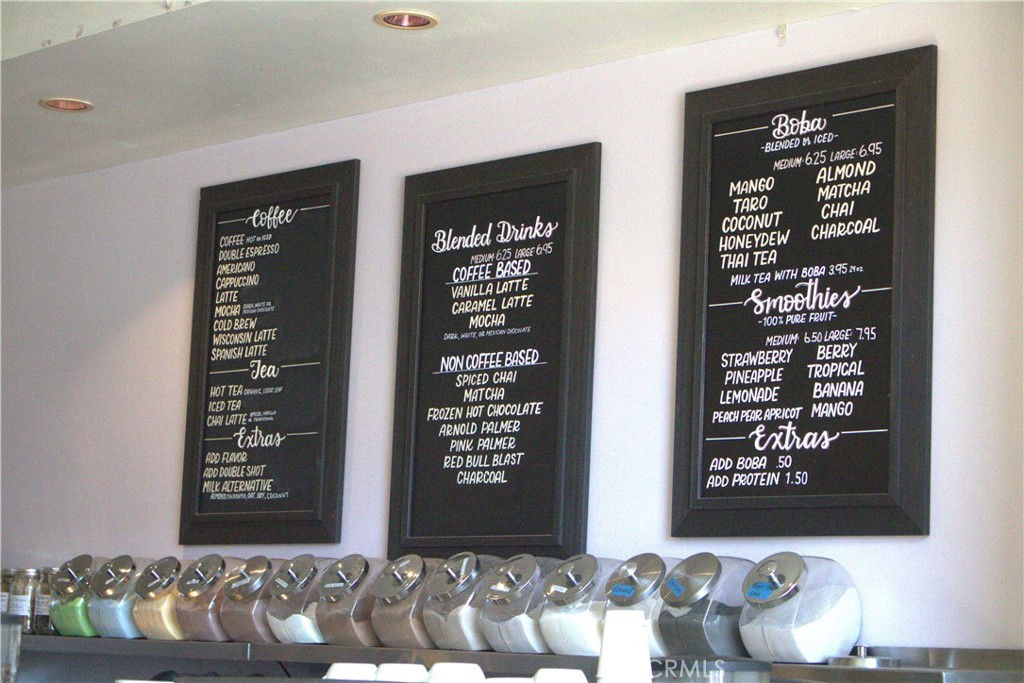 Coffee
COFFEE HOT OR ICED
DOUBLE ESPRESSO
AMERICANO
CAPPUCCINO
LATTE
MOCHA DARK, WHITE OR
MEXICAN CHOCOLATE
COLD BREW
WISCONSIN LATTE
SPANISH LATTE
Tea
HOT TEA ORGANIC, LOOSE LEAF
ICED TEA
CHAI LATTE SPICED, VANILLA
OR TRADITIONAL
Extras
ADD FLAVOR
ADD DOUBLE SHOT
MILK ALTERNATIVE
OAT, SOY, COCONUT
Blended Drinks
MEDIUM 6.25 LARGE 6.95
COFFEE BASED
VANILLA LATTE
CARAMEL LATTE
MOCHA
DARK, WHITE, OR MEXICAN CHOCOLATE
NON COFFEE BASED
SPICED CHAI
MATCHA
FROZEN HOT CHOCOLATE
ARNOLD PALMER
PINK PALMER
RED BULL BLAST
CHARCOAL
Boba
-BLENDED OR ICED-
MEDIUM: 6.25 LARGE: 6.95
MANGO
TARO
COCONUT
HONEYDEW
THAI TEA
ALMOND
MATCHA
CHAI
CHARCOAL
MILK TEA WITH BOBA 3.95 24 oz
Smoothies
-100% PURE FRUIT-
MEDIUM: 6.50 LARGE: 7.95
STRAWBERRY
PINEAPPLE
LEMONADE
PEACH PEAR APRICOT
BERRY
TROPICAL
BANANA
MANGO
Extras
ADD BOBA .50
ADD PROTEIN 1.50
CRMLS